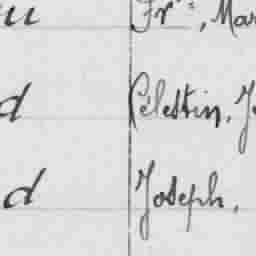 u Fr., Mar
d Célestin, Je
d Joseph,